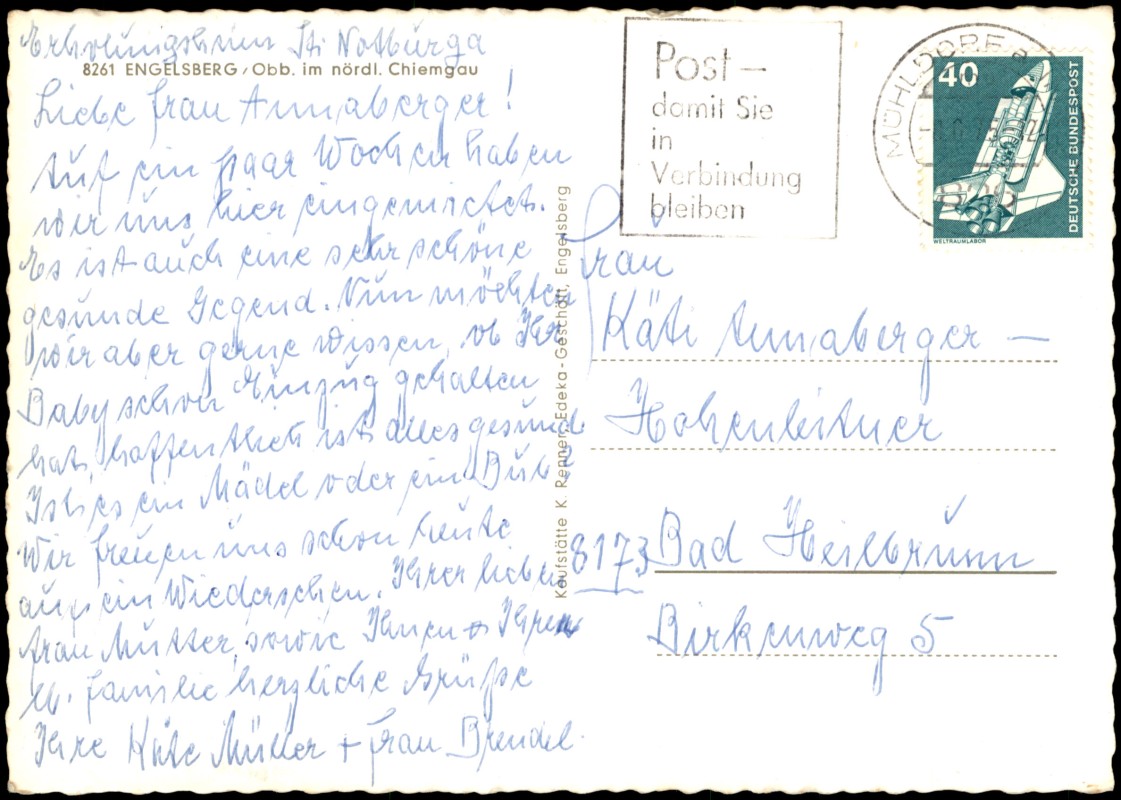 Erholungsheim St. Notburga
8261 ENGELSBERG/Obb. im nördl. Chiemgau
Liebe Frau Annaberger!
Auf ein paar Wochen haben
wir uns hier eingenistet.
Es ist auch eine sehr schöne
gesunde Gegend. Nun möchten
wir aber gerne wissen, ob Ihr
Baby schon Einzug gehalten
hat, hoffentlich ist alles gesund
Ist es ein Mädel oder ein Bub?
Wir freuen uns schon heute
aufs ein Wiedersehen. Ihrer lieben
Frau Mutter, sowie Ihnen Ihren
w. Familie herzliche Grüße
Ihre Käte Müller + Frau Brendel.
Kaufstätte K. Renner, Edeka-Geschäft, Engelsberg
Post –
damit Sie
in
Verbindung
bleiben
MÜHLDORF a
40
DEUTSCHE BUNDESPOST
WELTRAUMLABOR
Frau
Käti Annaberger –
Hohenleitner
8173 Bad Heilbrunn
Birkenweg 5